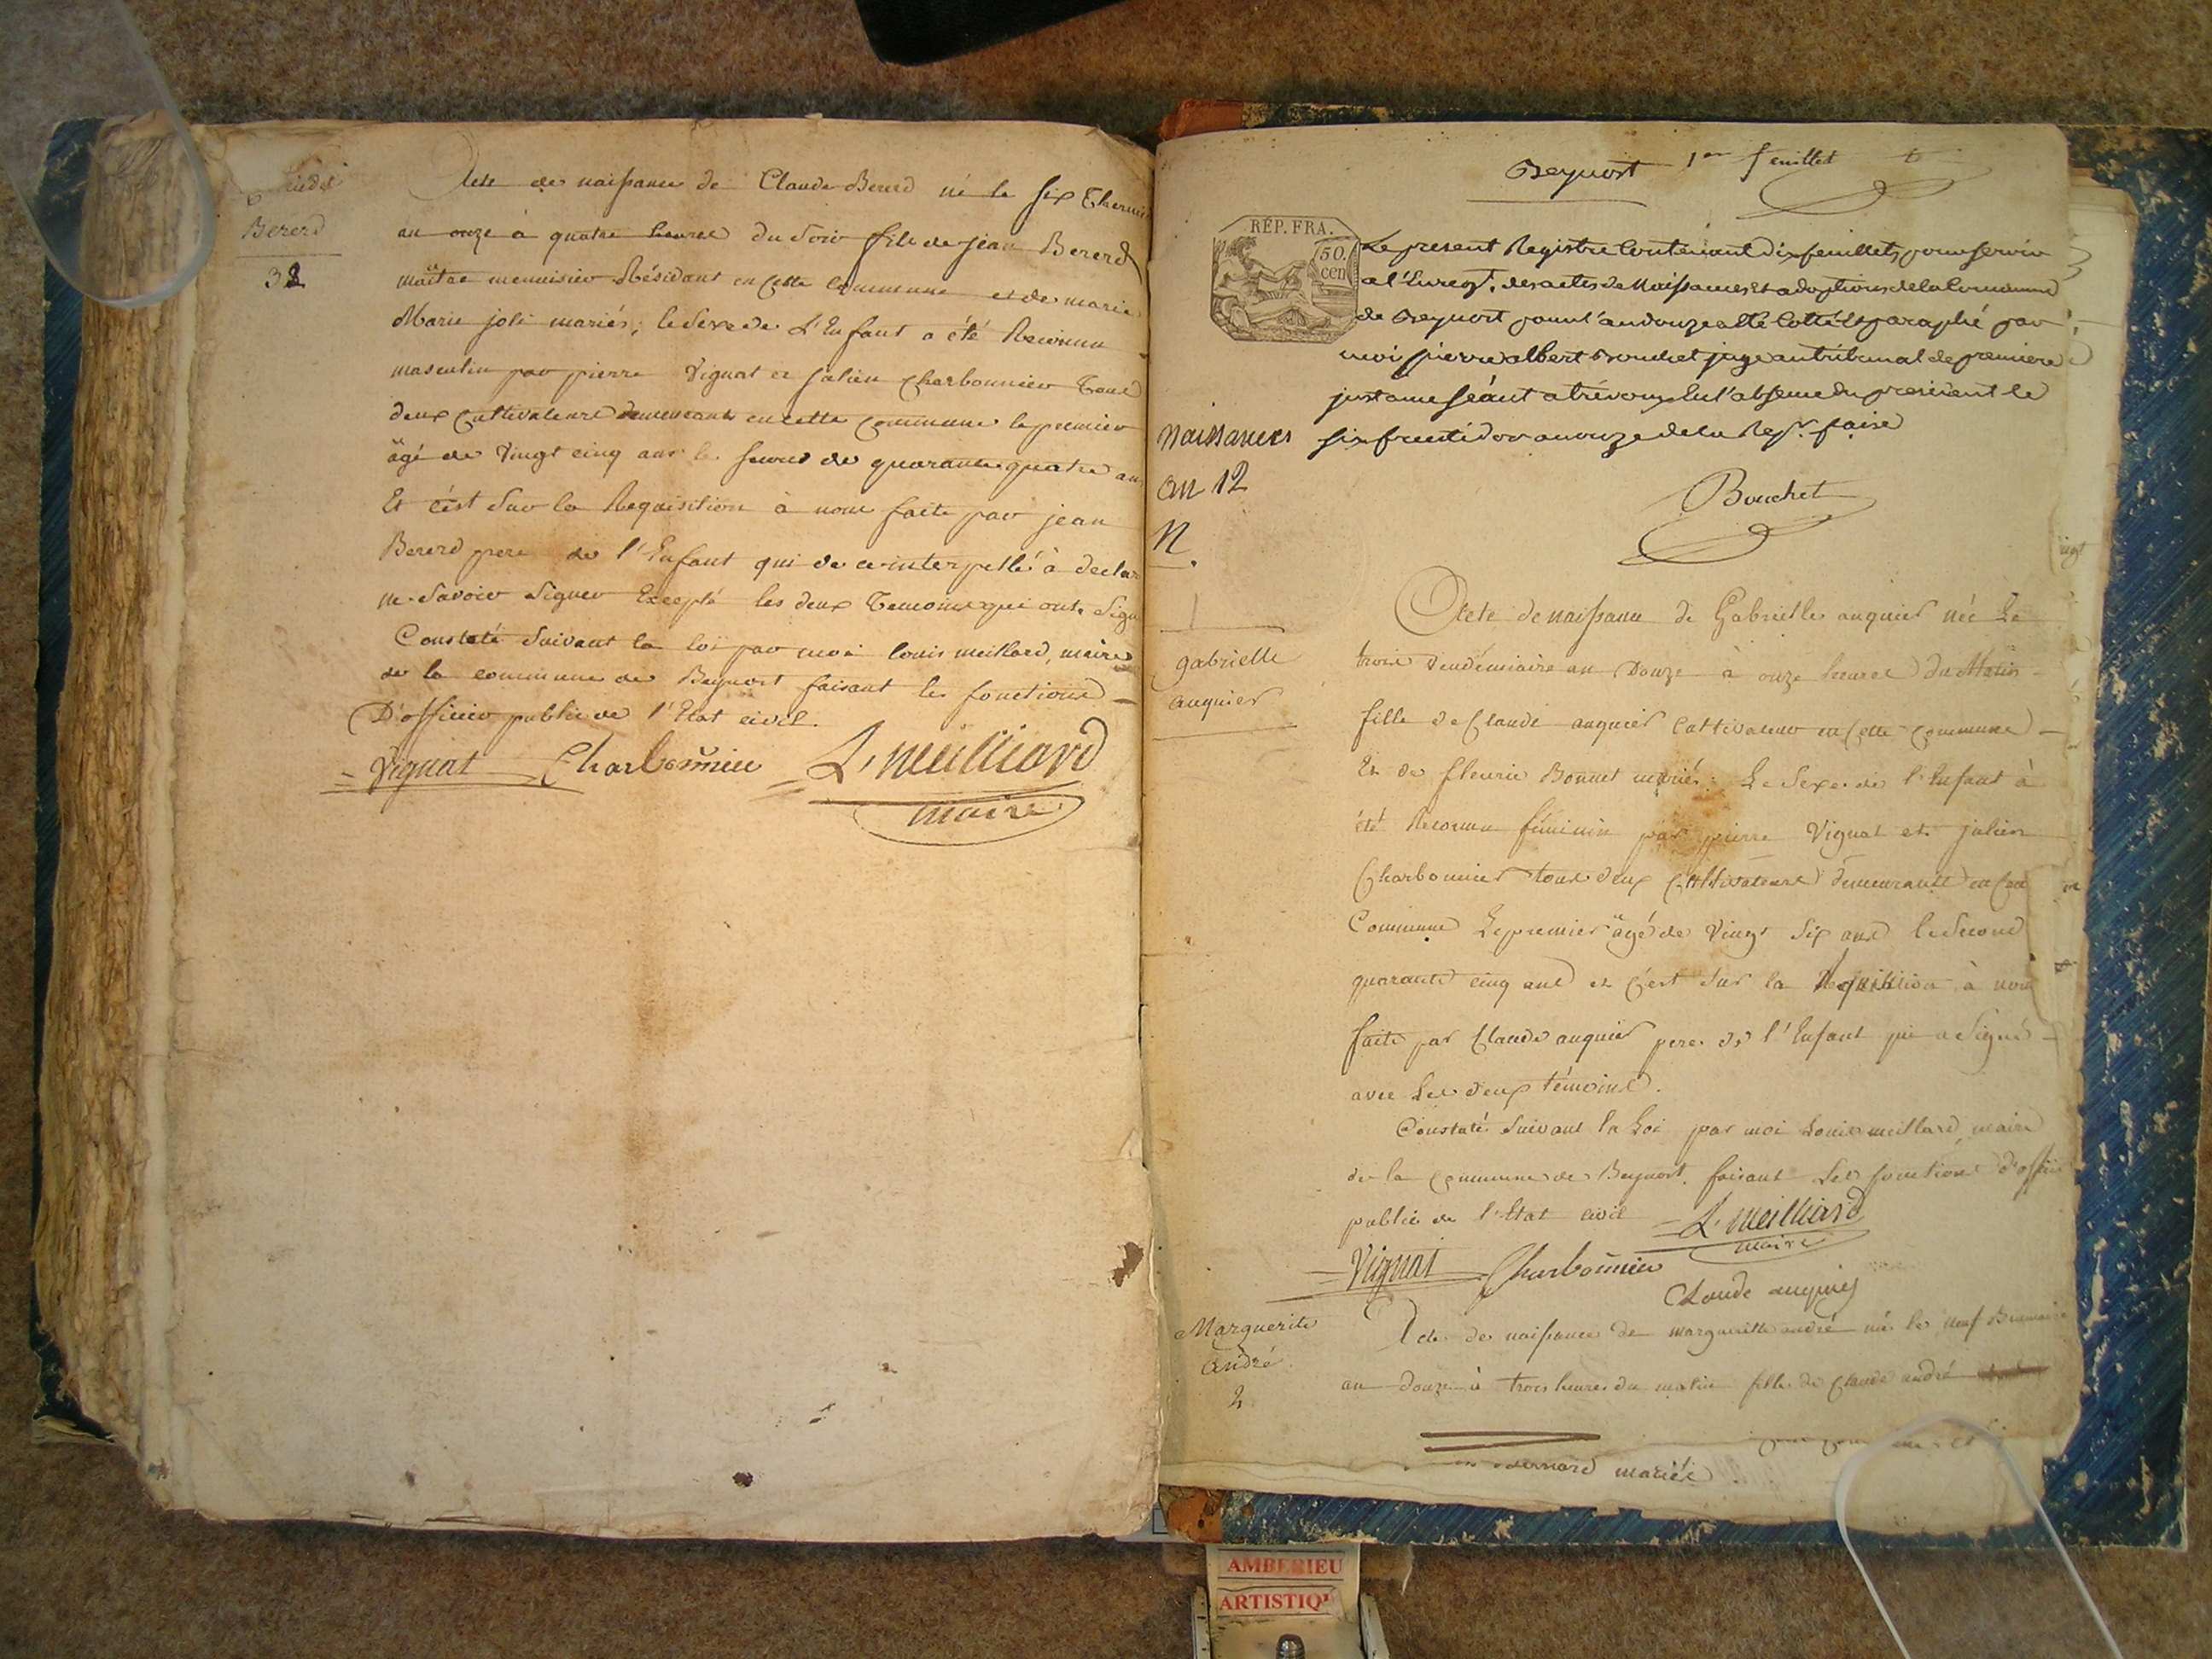 Bererd
32
Acte de naissance de Claude Bererd né le six Thermi
an onze à quatre heures du soir fils de jean Bererd
maitre menuisier Résidant en cette commune et de marie
Marie joli mariés, le sexe de L'Enfant a été Reconnu
masculin par pierre Vignat et julien Charbonnier Tous
deux Cultivateurs demeurants en cette Commune le premier
âgé de Vingt cinq ans le second de quarante quatre ans
Et c'est sur la Requisition à nous faite par jean
Bererd pere de l'Enfant qui de ce interpellé à declar
ne savoir signer Excepté les deux Temoins qui ont signé
Constaté suivant la loi par moi louis meillard, maire
de la commune de Beynost faisant les fonctions
D'officier public de l'Etat civil.
Vignat Charbonnier L. meilliard
maire
Beynost 1er feuillet
RÉP. FRA.
50.
cen
Le present Registre Contenant dix feuillets pour servir
a l'Enregt. des actes de Naissances et adoptions de la Commune
de Beynost pour l'an douze a été Cotté et paraphé par
moi pierre albert Bouchet juge au tribunal de premiere
justance séant a trévoux En l'absence du president le
six fructidor an onze de la Rep. fçaise
Bouchet
Naissances
an 12
N.
1
gabrielle
auquier
Acte de naissance de Gabrielle auquier née Le
trois Vendémiaire an Douze à onze heures du Matin
fille de Claude auquier Cultivateur en Cette Commune
Et de fleurie Bonnet mariés. Le Sexe de l'Enfant à
été Reconnu féminin par pierre Vignat et julien
Charbonnier tous deux Cultivateurs demeurants en Cette
Commune Le premier âgé de Vingt Six ans le Second
quarante cinq ans et C'est sur la Requisition à nous
faite par Claude auquier pere de l'Enfant qui a Signé
avec Les deux témoins.
Constaté Suivant la Loi par moi Louis meillard maire
de la Commune de Beynost. faisant Les fonctions d'offici
public de l'Etat civil L. meilliard
maire
Vignat Charbonnier
Claude auquier
Marguerite
andré
2
Acte de naissance de marguerite andré née le neuf Brumaire
an douze à trois heures du matin fille de Claude andré
mariés
AMBERIEU
ARTISTIQU